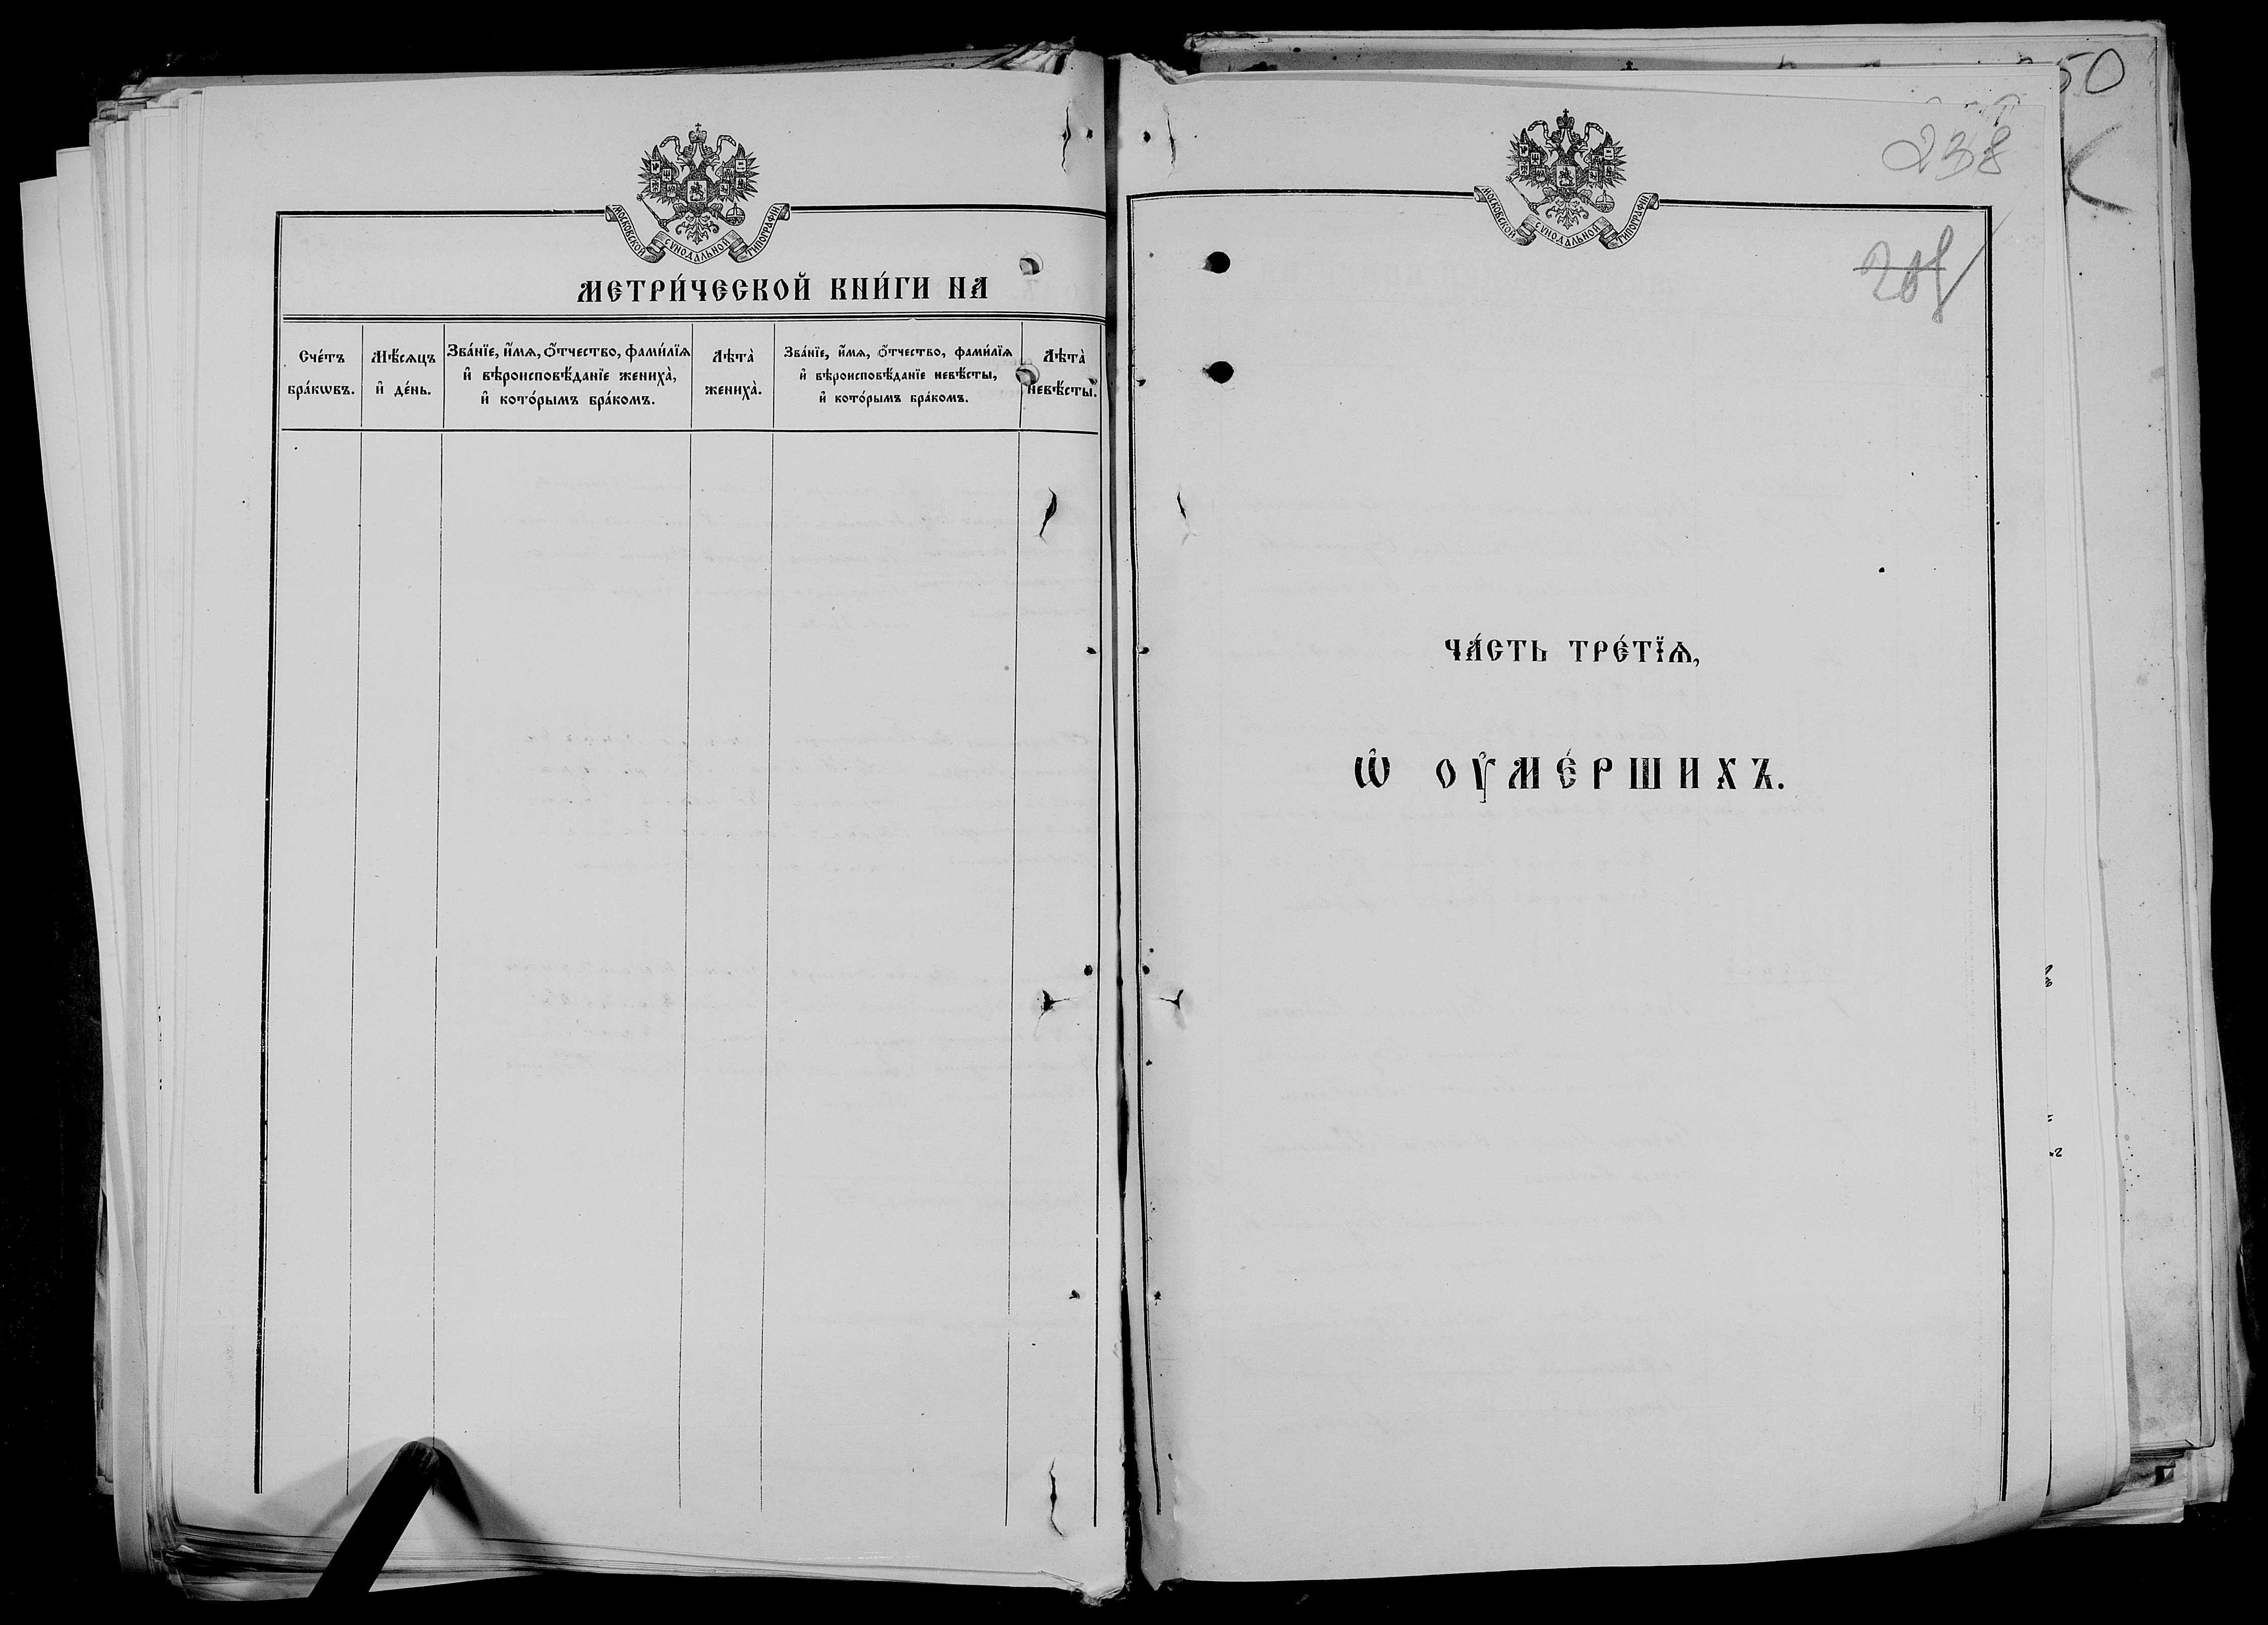 МОСКОВСКОЙ СѴНОДАЛЬНОЙ ТИПОГРАФІИ
МЕТРИ́ЧЕСКОЙ КНИ́ГИ НА
Сче́тъ бра́кѡвъ.
Мѣ́сѧцъ и҆ де́нь.
Зва́нїе, и҆́мѧ, ѻ҆́тчество, фами́лїѧ
и҆ вѣроисповѣ́данїе жениха̀,
и҆ кото́рымъ бра́комъ.
Лѣта̀ жениха̀.
Зва́нїе, и҆́мѧ, ѻ҆́тчество, фами́лїѧ
и҆ вѣроисповѣ́данїе невѣ́сты,
и҆ кото́рымъ бра́комъ.
Лѣта̀ невѣ́сты.
50
238
МОСКОВСКОЙ СѴНОДАЛЬНОЙ ТИПОГРАФІИ
ЧА́СТЬ ТРЕ́ТЇѦ,
Ѡ҆ ОУ҆МЕ́РШИХЪ.